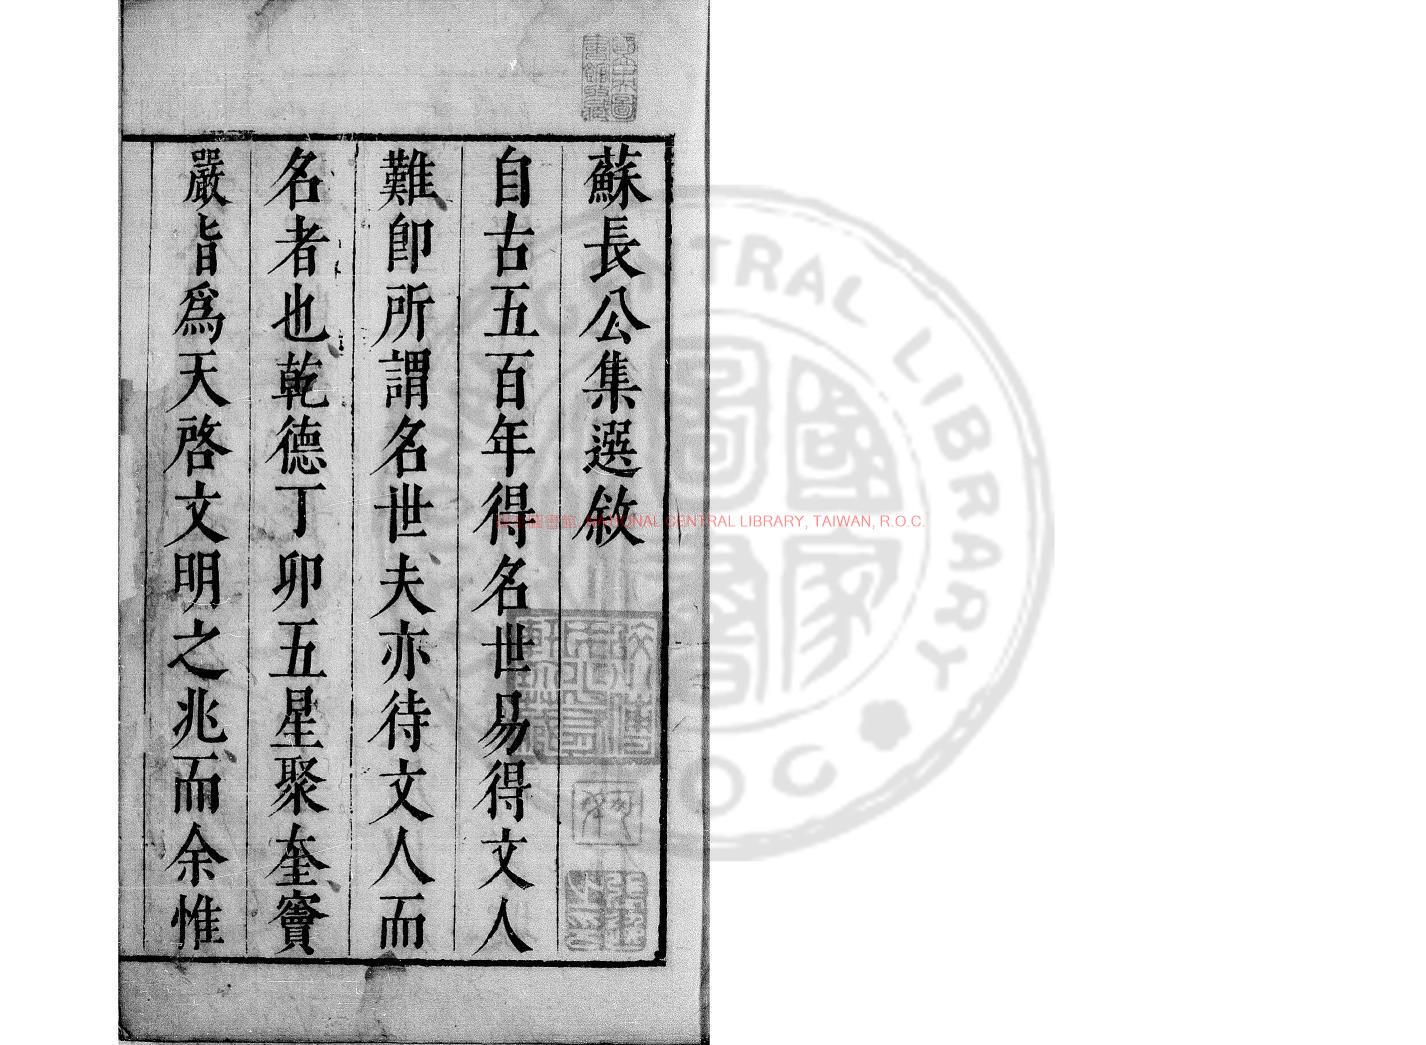 蘇長公集選敘
自古五百年得名世易得文人
難卽所謂名世夫亦待文人而
名者也乾德丁卯五星聚奎竇
嚴㫖爲天啓文明之兆而余惟
NATIONAL CENTRAL LIBRARY, TAIWAN, R.O.C.